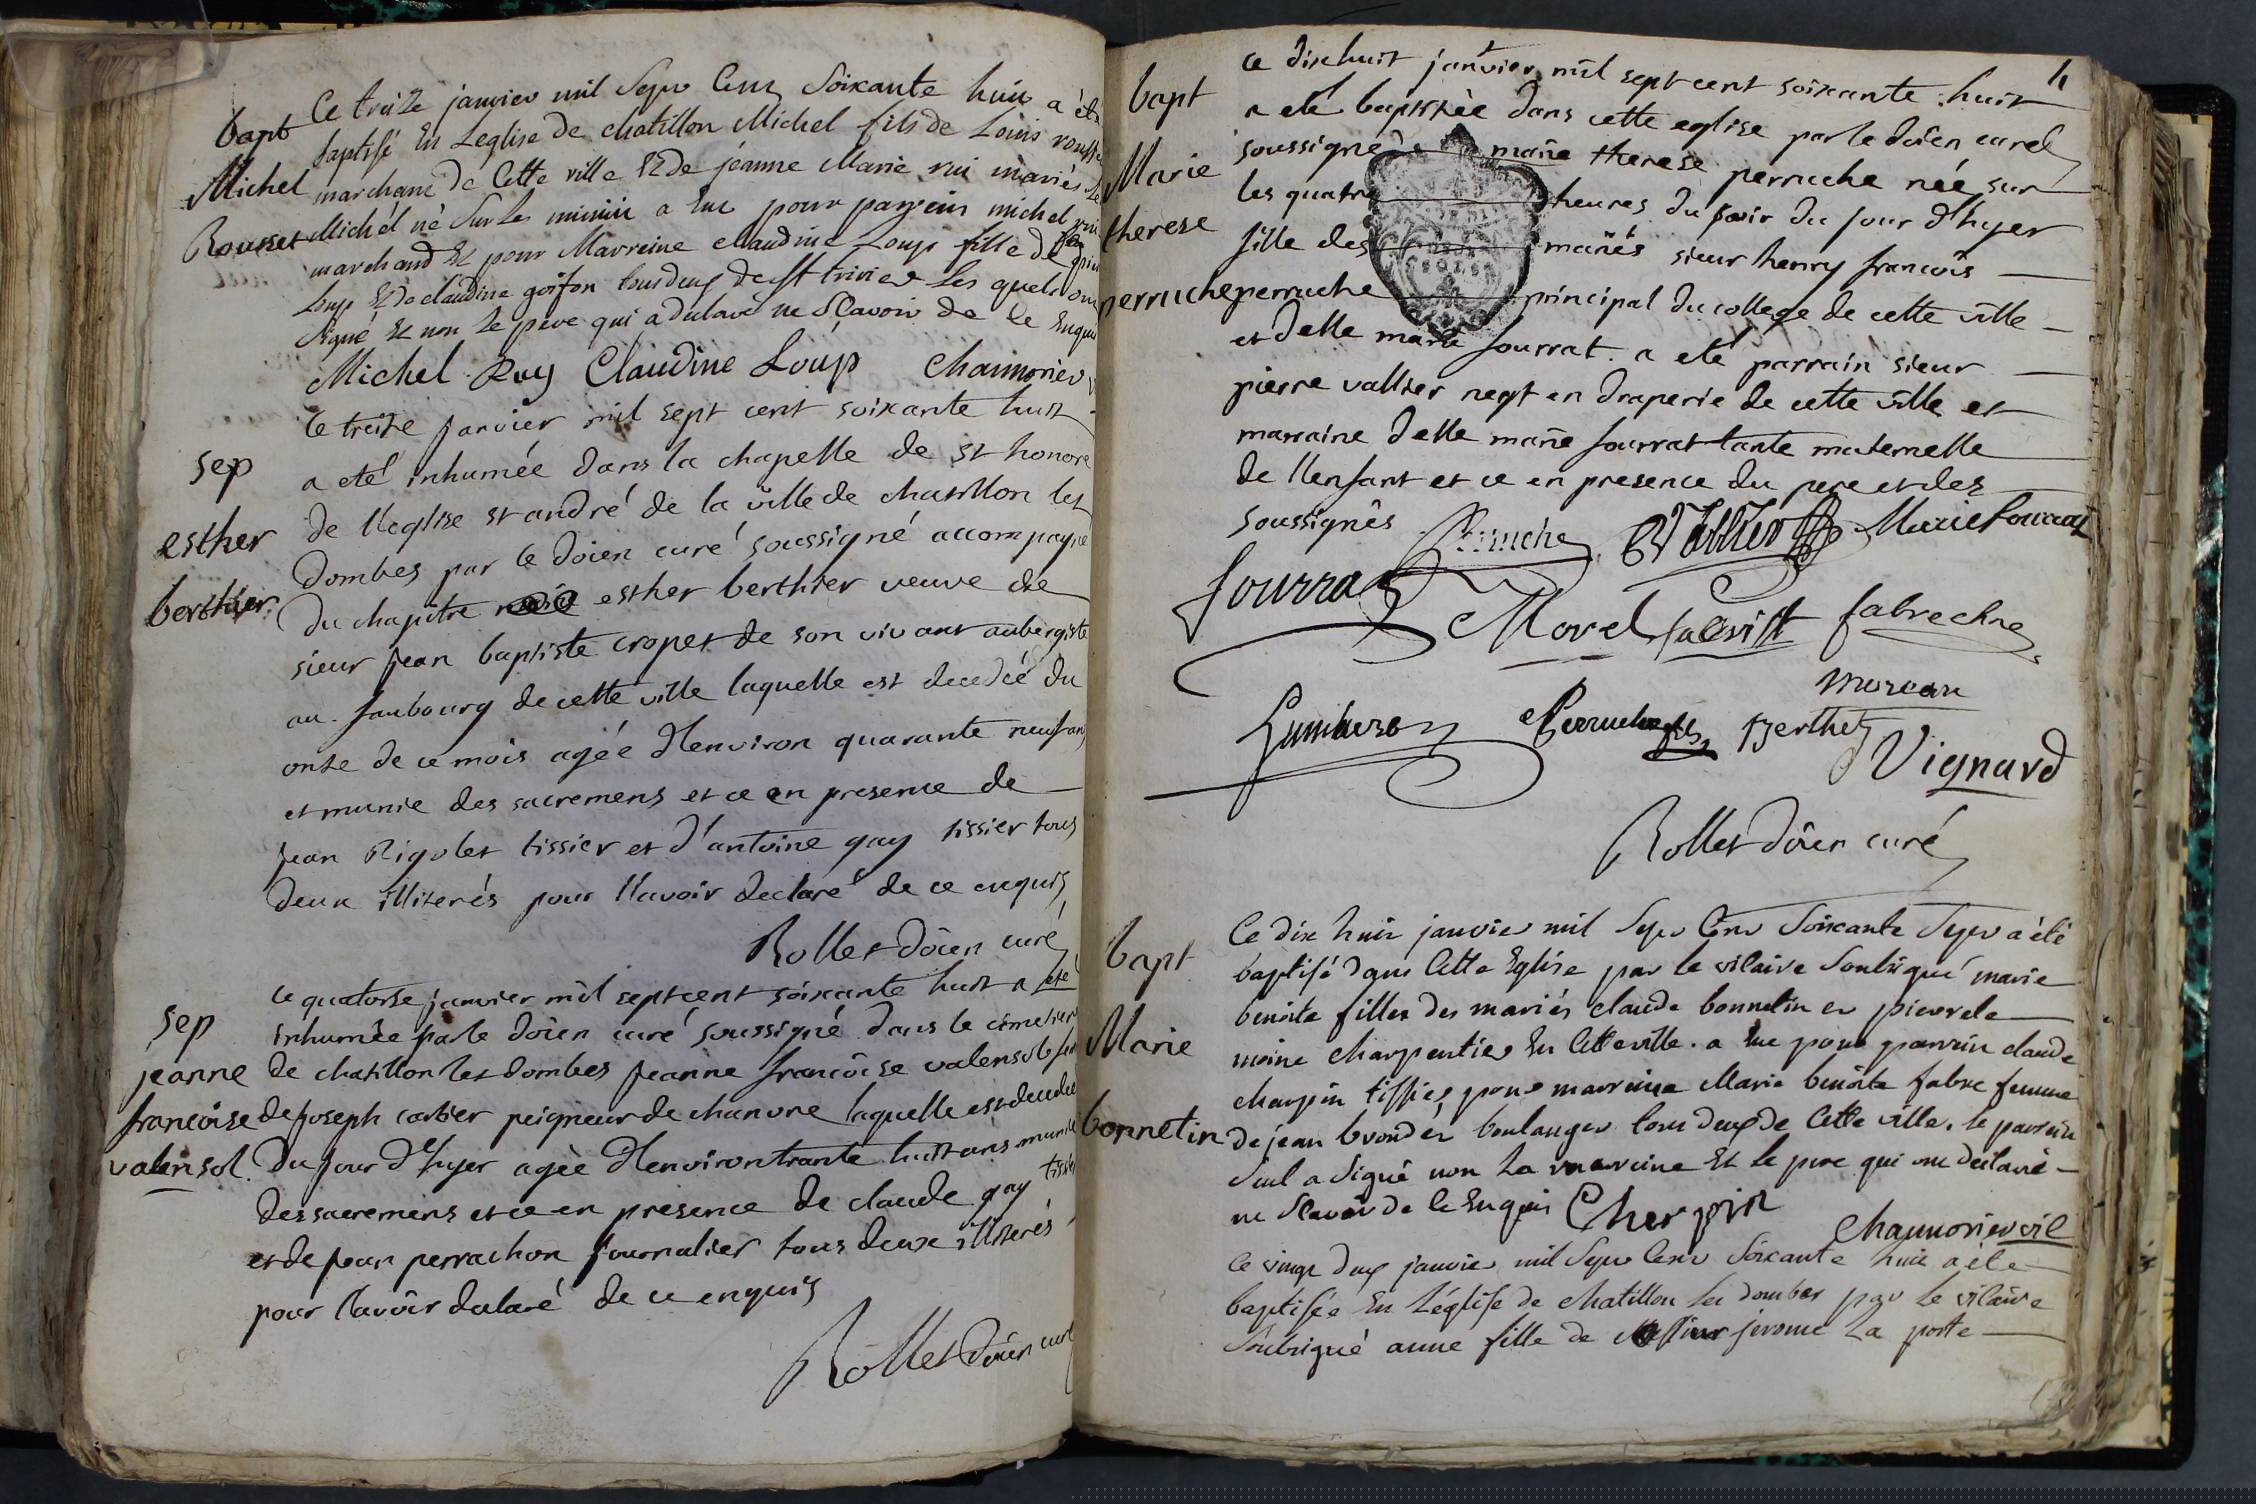 bapt
Michel
Rousset
Ce treize janvier mil Sept Cent Soixante huit a été
baptisé En Leglise de chatillon Michel fils de Louis
marchand de Cette ville Et de jéanne Marie rui mariés Le
Michel né Sur Les minuit a Eut pour parrein michel rui
marchand Et pour Marreine claudine Loup fille de
Loup Et de claudine goiffon tous deux de St trivier Les quels ont
signé Et non Le pere qui a declaré ne Sçavoir de ce Enquis
Michel Ruy Claudine Loup Chaumorier
sep
esther
berthier.
Ce treize janvier mil sept cent soixante huit
a eté inhumée dans la chapelle de st honore
de l'leglise st andré de la ville de chatillon les
Dombes par le doïen curé soussigné accompagné
du chapitre esther berthier veuve de
sieur jean baptiste cropet de son vivant aubergiste
au faubourg de cette ville laquelle est decedée du
onse de ce mois agée d'lenviron quarante neuf ans
et munie des sacremens et ce en presence de
jean Rigolet tissier et d'antoine gay tissier tous
deux illiterés pour l'lavoir declaré de ce enquis
Rollet doïen curé
sep
jeanne
francoise
valensol.
ce quatorse janvier mil sept cent soixante huit a eté
inhumée par le doïen curé soussigné dans le cimetiere
de chatillon les dombes jeanne francoise valensol
de joseph carbier peigneur de chanvre laquelle est decedée
du jour d'hyer agée d'lenviron trante huit ans munie
des sacremens et ce en presence de claude gay tissier
et de jean perrachon journalier tous deux illiterés
pour l'lavoir declaré de ce enquis
Rollet doïen curé
4
bapt
Marie
therese
perruche
ce dixhuit janvier mil sept cent soixante huit
a eté baptisée dans cette eglise par le doïen curé
soussigné marie therese perruche née sur
les quatre heures du soir du jour d'hyer
fille des mariés sieur henry francois
perruche principal du college de cette ville
et delle marie fourrat. a eté parrain sieur
pierre vallier negt en draperie de cette ville et
marraine delle marie fourrat tante maternelle
de l'lenfant et ce en presence du pere et des
soussignés Perruche Vallier Marie fourrat
fourrat Morel fabre chne
moreau
Perruche fils Berthet
Vignard
Rollet doïen curé
bapt
Marie
bonnetin
Ce dix huit janvier mil Sept Cent Soixante Sept a été
baptisé dans Cette Eglise par le vicaire Soubsigné marie
benoite filles des mariés claude bonnetin et pierrete
moine charpentier En Cette ville. a Eut pour parrein claude
charpin tissier, pour marreine Marie benoite fabre femme
de jean brondés boulanger tous deux de Cette ville. Le parrein
Seul a Signé non La marreine Et Le pere qui ont declaré
ne Sçavoir de Ce Enquis Cherpin
Chaumorier vic
Ce vingt deux janvier mil Sept Cent Soixante huit a été
baptisée En L'église de Chatillon Les dombes par Le vicaire
Soubsigné anne fille de Messieur jerome La poste